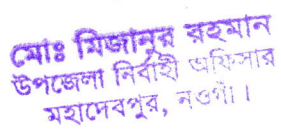 মোঃ মিজানুর রহমান
উপজেলা নির্বাহী অফিসার
মহাদেবপুর, নওগাঁ।